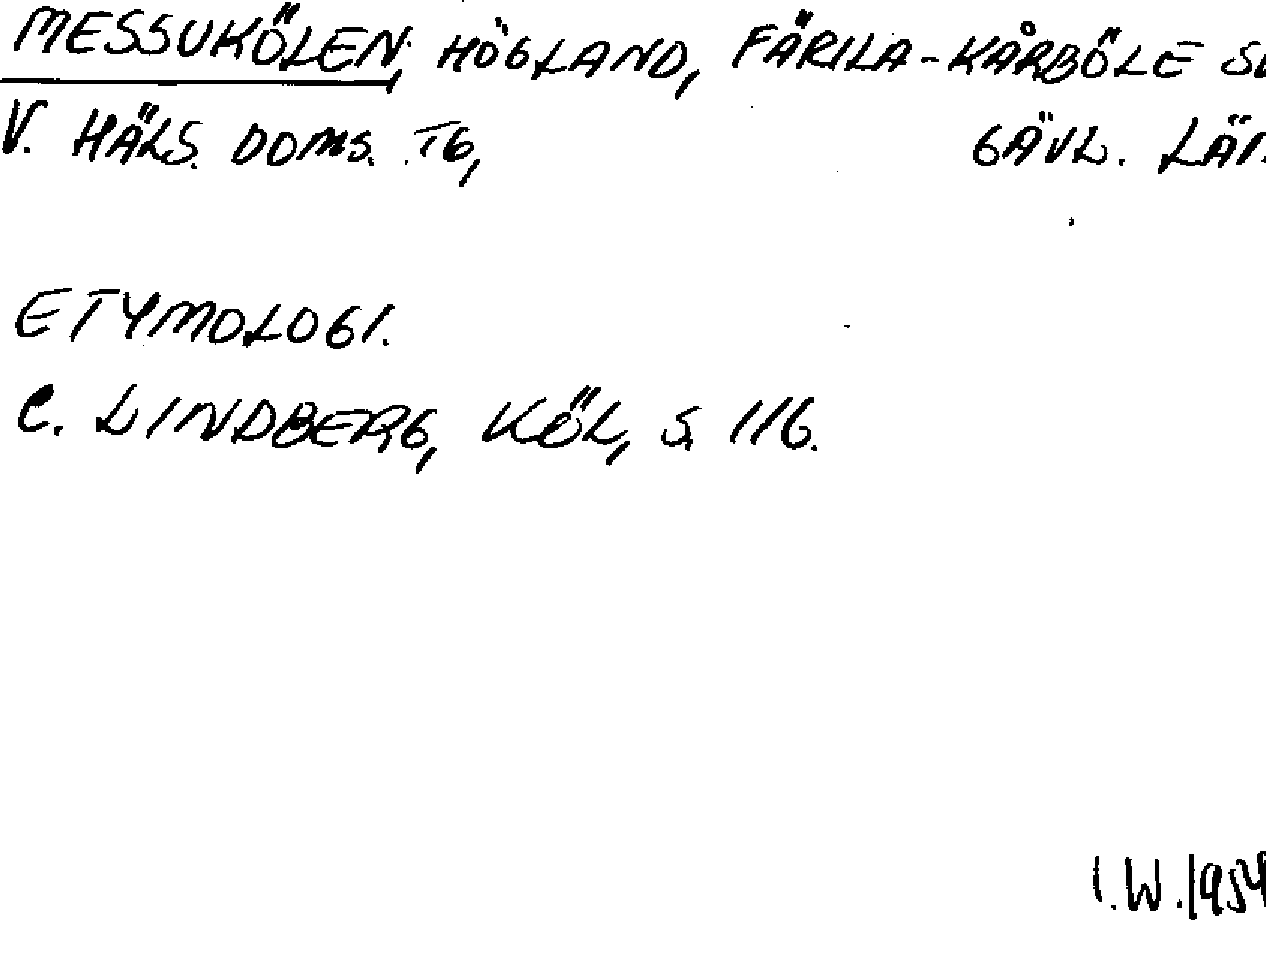 MESSUKÖLEN, HÖGLAND, FÄRILA-KÅRBÖLE
V. HÄLS. DOMS. TG, GÄVL. LÄN
ETYMOLOGI.
C. LINDBERG, KÖL, S. 116.
I.W. 1954